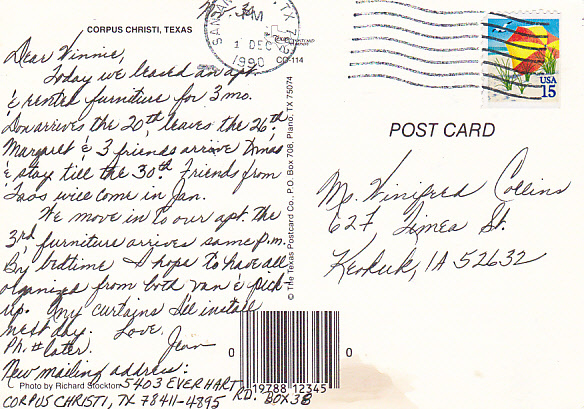 CORPUS CHRISTI, TEXAS
Dear Winnie,
Today we leased an apt.
& rented furniture for 3 mo.
Don arrives the 20th, leaves the 26th;
Margaret & 3 friends arrive Xmas
& stay till the 30th. Friends from
Taos will come in Jan.
We move in to our apt. the
3rd, furniture arrives same p.m.
By bedtime I hope to have all
organized from both van & pick
up. My curtains I'll install
next day. Love,
Ph. # later. Jean
New mailing address:
Photo by Richard Stockton
5403 EVERHART
CORPUS CHRISTI, TX 78411-4895 RD. BOX 38
PM
1 DEC
1990
CC-114
© The Texas Postcard Co., P.O. Box 708, Plano, TX 75074
USA
15
POST CARD
Ms. Winifred Collins
627 Times St.
Keokuk, IA 52632
0 19788 12345 0